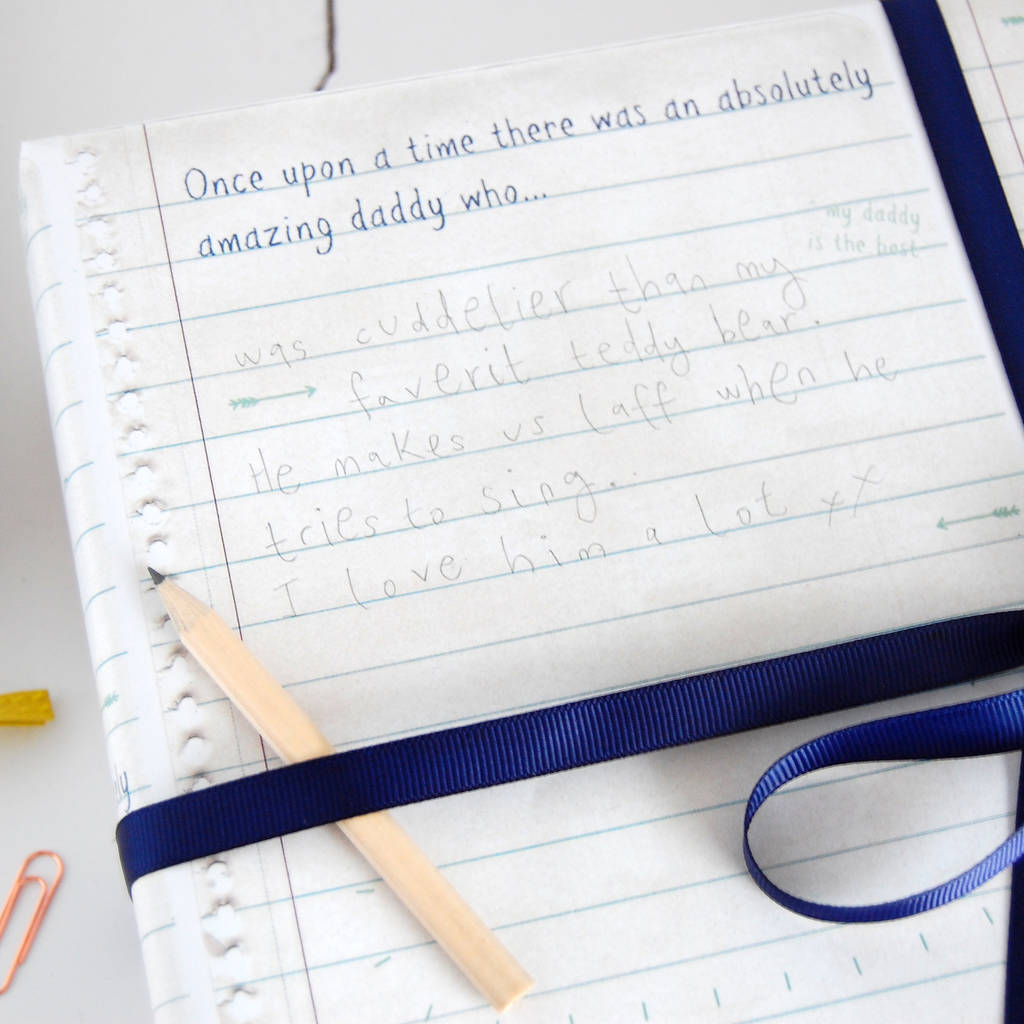 Once upon a time there was an absolutely
amazing daddy who...
my daddy
is the best
was cuddelier than my
faverit teddy bear.
He makes us laff when he
tries to sing..
I love him a lot xx